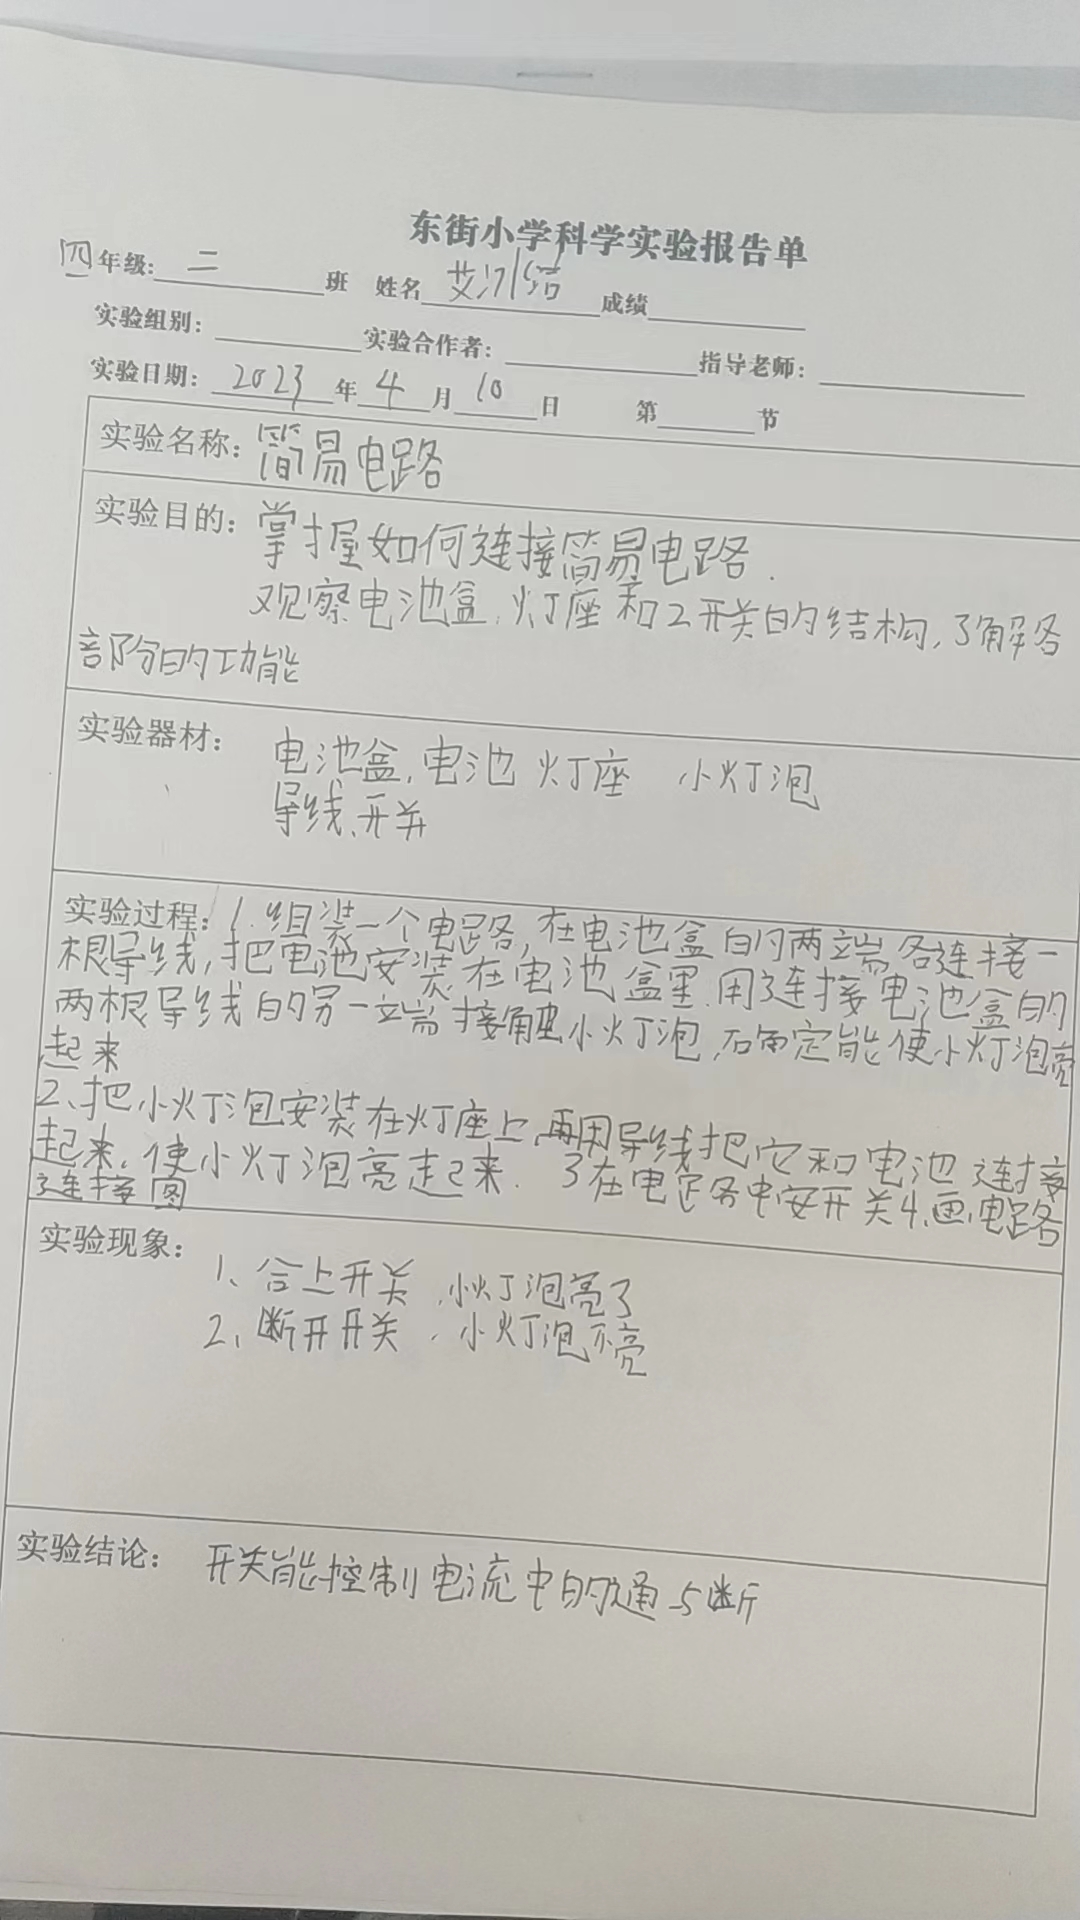 东街小学科学实验报告单
四年级: 二 班 姓名 艾 成绩
实验组别: 实验合作者: 指导老师:
实验日期: 2023 年 4 月 10 日 第 节
实验名称: 简易电路
实验目的: 掌握如何连接简易电路.
观察电池盒、灯座和2开关的结构,了解各
部分的功能
实验器材: 电池盒,电池 灯座 小灯泡
导线、开关
实验过程: 1.组装一个电路,在电池盒的两端各连接一
根导线,把电池安装在电池盒里.用连接电池盒的
两根导线的另一端接触小灯泡,确定能使小灯泡亮
起来
2、把小灯泡安装在灯座上,再用导线把它和电池连接
起来,使小灯泡亮起来. 3在电路中安开关4、画电路
连接图
实验现象:
1、合上开关,小灯泡亮了
2、断开开关,小灯泡不亮
实验结论: 开关能控制电流中的通与断